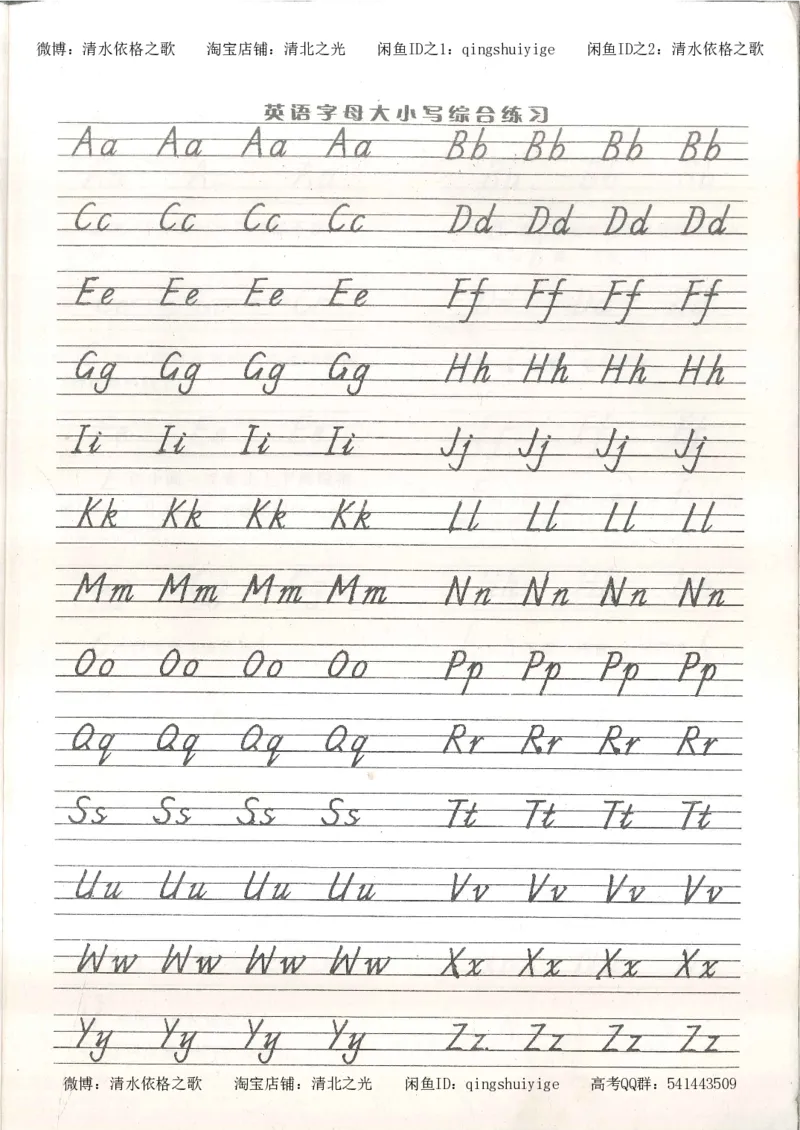 微博：清水依格之歌 淘宝店铺：清北之光 闲鱼ID之1：qingshuiyige 闲鱼ID之2：清水依格之歌
英语字母大小写综合练习
Aa Aa Aa Aa Bb Bb Bb Bb
Cc Cc Cc Cc Dd Dd Dd Dd
Ee Ee Ee Ee Ff Ff Ff Ff
Gg Gg Gg Gg Hh Hh Hh Hh
Ii Ii Ii Ii Jj Jj Jj Jj
Kk Kk Kk Kk Ll Ll Ll Ll
Mm Mm Mm Mm Nn Nn Nn Nn
Oo Oo Oo Oo Pp Pp Pp Pp
Qq Qq Qq Qq Rr Rr Rr Rr
Ss Ss Ss Ss Tt Tt Tt Tt
Uu Uu Uu Uu Vv Vv Vv Vv
Ww Ww Ww Ww Xx Xx Xx Xx
Yy Yy Yy Yy Zz Zz Zz Zz
微博：清水依格之歌 淘宝店铺：清北之光 闲鱼ID：qingshuiyige 高考QQ群：541443509